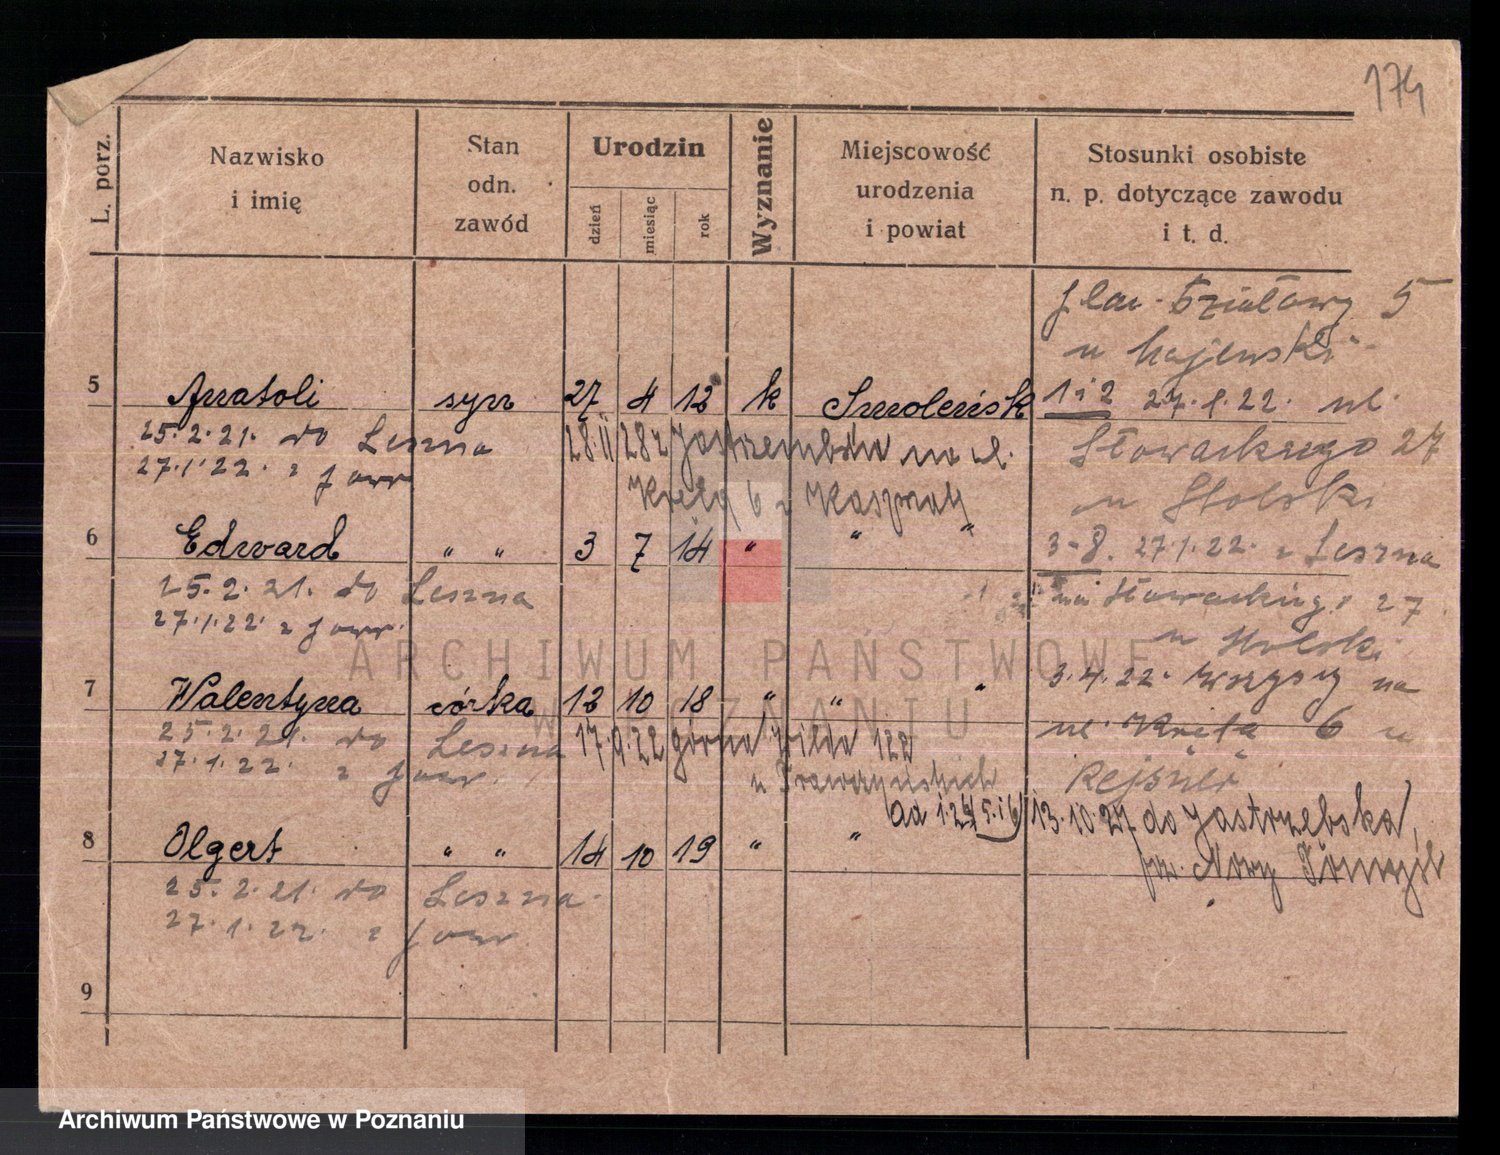 174
L. porz.
Nazwisko
i imię
Stan
odn.
zawód
Urodzin
dzień
miesiąc
rok
Wyznanie
Miejscowość
urodzenia
i powiat
Stosunki osobiste
n. p. dotyczące zawodu
i t. d.
Działowy 5
u Majewski
5 Anatoli syn 27 4 12 k Smoleńsk 1 i 2 27.1.22. ul.
25.2.21. do Leszna 28.II Jastrzembów na ul. Słowackiego 27
27.1.22. z
Kręta 6 u Kasprzak u Stolski
6 Edward " " 3 7 14 " " " 3-8. 27.1.22. z Leszna
25.2.21. do Leszna na Słowackiego 27
27.1.22. z
u Stolski
ARCHIWUM PAŃSTWOWE
W POZNANIU
7 Walentyna córka 12 10 18 " " " 3.4.22. wszyscy na
25.2.21. do Leszna 17.9.22 górna Wilda 122 ul. Kręta 6 u
27.1.22. z
u
Ad 1.2.4.5.i 6/ 13.10.27 do Jastrzębska,
8 Olgert " " 14 10 19 " " Nowy Tomyśl
25.2.21. do Leszna
27.1.22. z
9
Archiwum Państwowe w Poznaniu